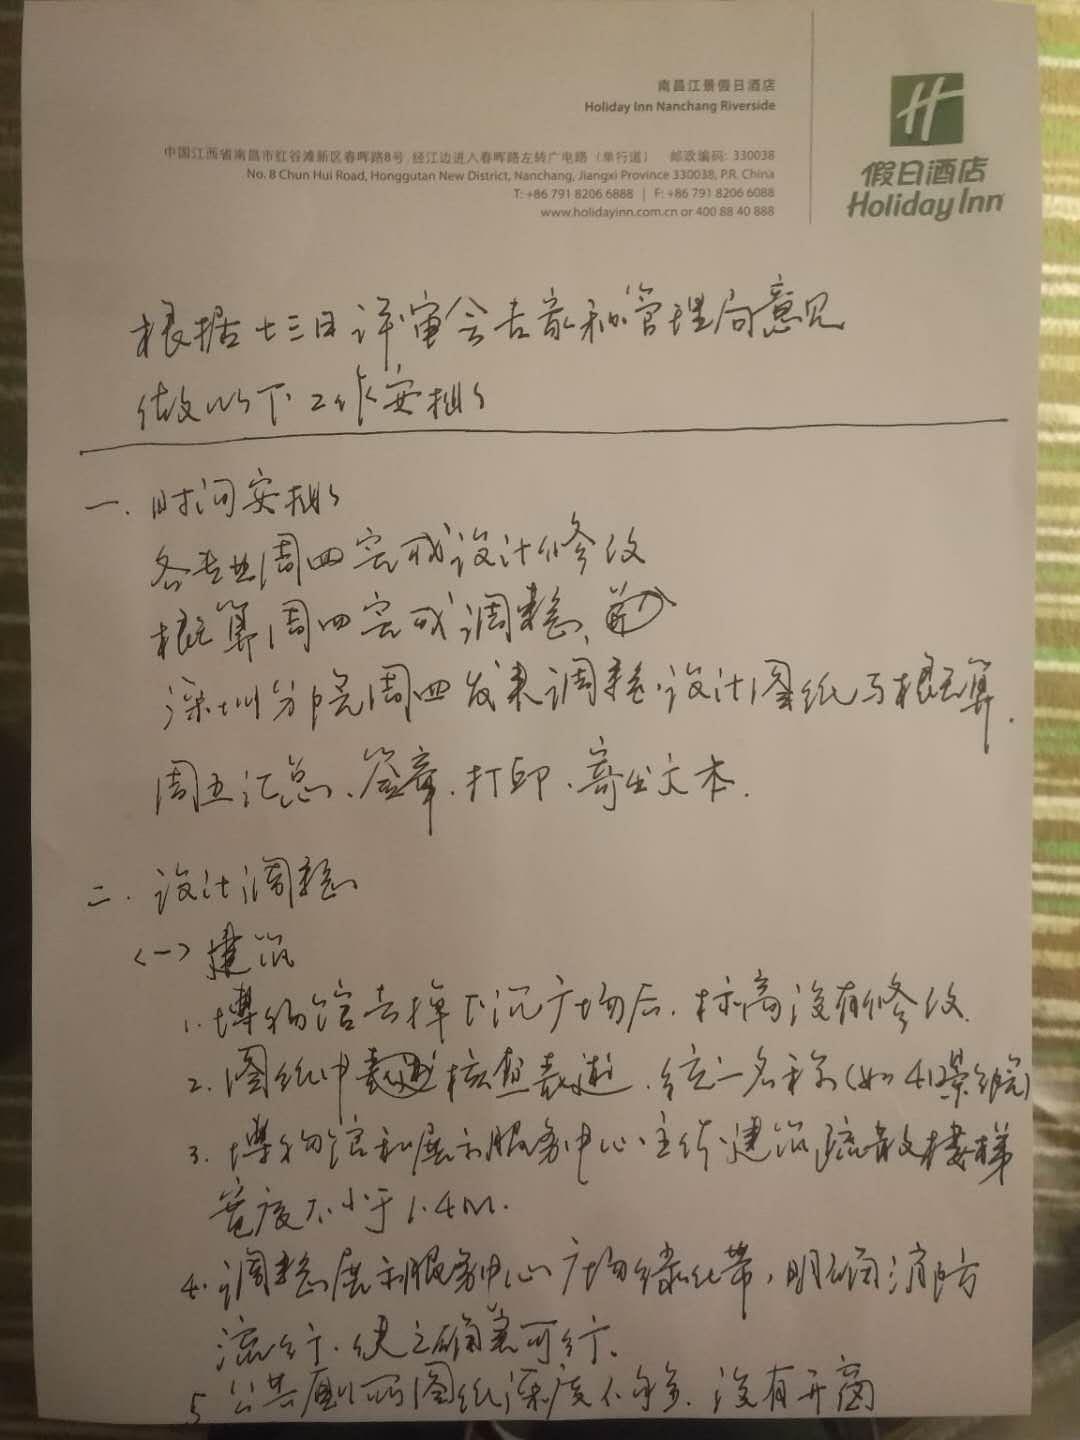 南昌江景假日酒店
Holiday Inn Nanchang Riverside
中国江西省南昌市红谷滩新区春晖路8号 经江边进入春晖路左转广电路（单行道） 邮政编码: 330038
No. 8 Chun Hui Road, Honggutan New District, Nanchang, Jiangxi Province 330038, P.R. China
T: +86 791 8206 6888 | F: +86 791 8206 6088
www.holidayinn.com.cn or 400 88 40 888
假日酒店
Holiday Inn
根据十三日评审会专家和管理局意见
做以下工作安排
一. 时间安排
各专业周四完成设计修改
概算周四完成调整、
深圳分院周四发来调整设计图纸与概算.
周五汇总、签章、打印、寄出文本.
二. 设计调整
(一) 建筑
1. 博物馆去掉下沉广场后, 标高没有修改.
2. 图纸中核查表述, 统一名称(如
3. 博物馆和展示服务中心主体建筑疏散楼梯
宽度不小于1.4m.
4. 调整展示服务中心广场绿化带, 明确消防
流线,
5 公共厕所图纸深度不够, 没有开窗